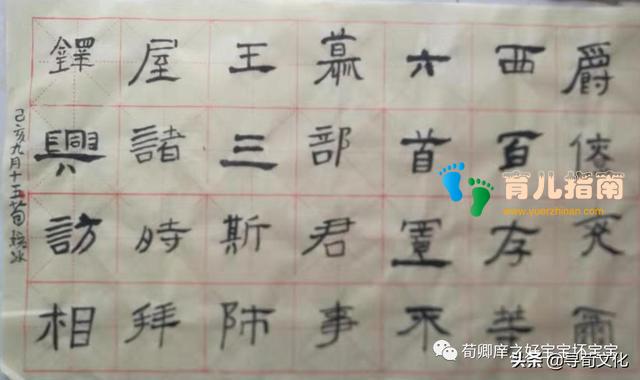 爵爾
西百存
六首置不
慕部君事
王三斯
屋諸時拜
鐸興訪相
己亥九月十五荀
育儿指南
www.yuerzhinan.com
荀卿庠之好宝宝坏宝宝
头条@寻荀文化